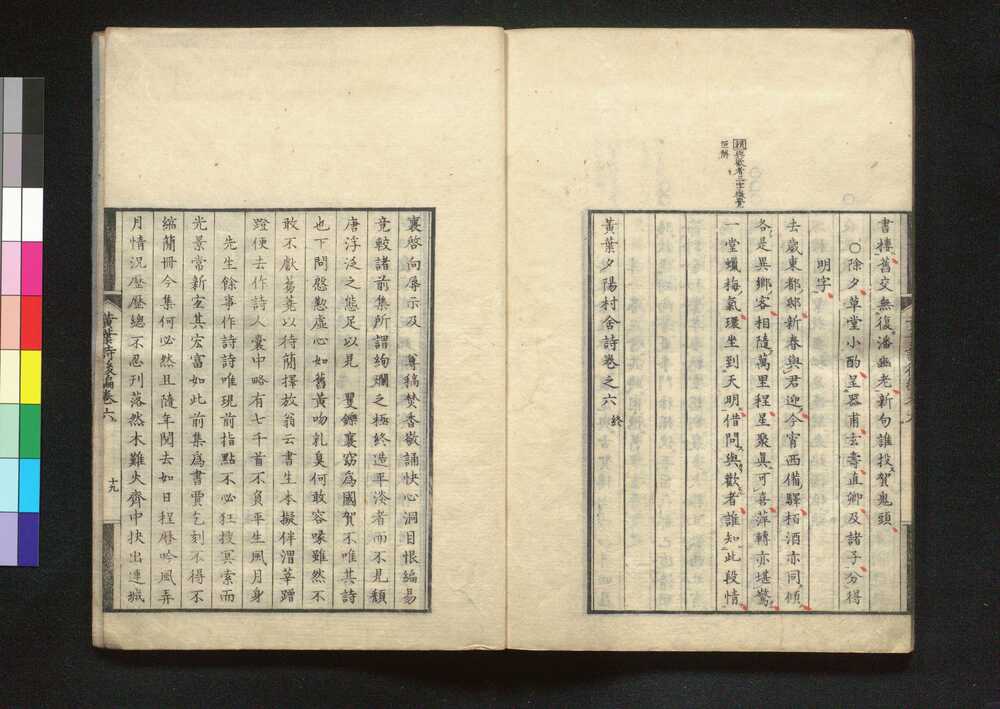 書樓舊交無復潘幽老新句誰投賀鬼頭
○除夕草堂小酌呈器甫玄壽直卿及諸子分得
明字
去歳東都邸新春與君迎今宵西備驛栢酒亦同傾
各是異鄉客相隨萬里程星聚眞可喜萍轉亦堪驚
一堂蠟梅氣環坐到天明借問與歡者誰知此段情
黃葉夕陽村舍詩卷之六 終
襄啓向辱示及 尊稿焚香敬誦快心洞目恨編昜
竟較諸前集所謂絢爛之極終造平淡者而不見頽
唐浮泛之態足以見 矍鑠襄窃為國賀不唯其詩
也下問慇懃虛心如舊黃吻乳臭何敢容喙雖然不
敢不獻芻蕘以待簡擇放翁云書生本擬伴渭莘蹭
蹬便去作詩人囊中略有七千首不負平生風月身
先生餘事作詩詩唯現前指點不必狂搜冥索而
光景常新宜其宏富如此前集爲書賈乞刻不得不
縮簡冊今集何必然且隨年閱去如日程曆吟風弄
月情況歷歷總不忍刊落然木難火齊中抉出連城
黃葉詩後編卷六
十九